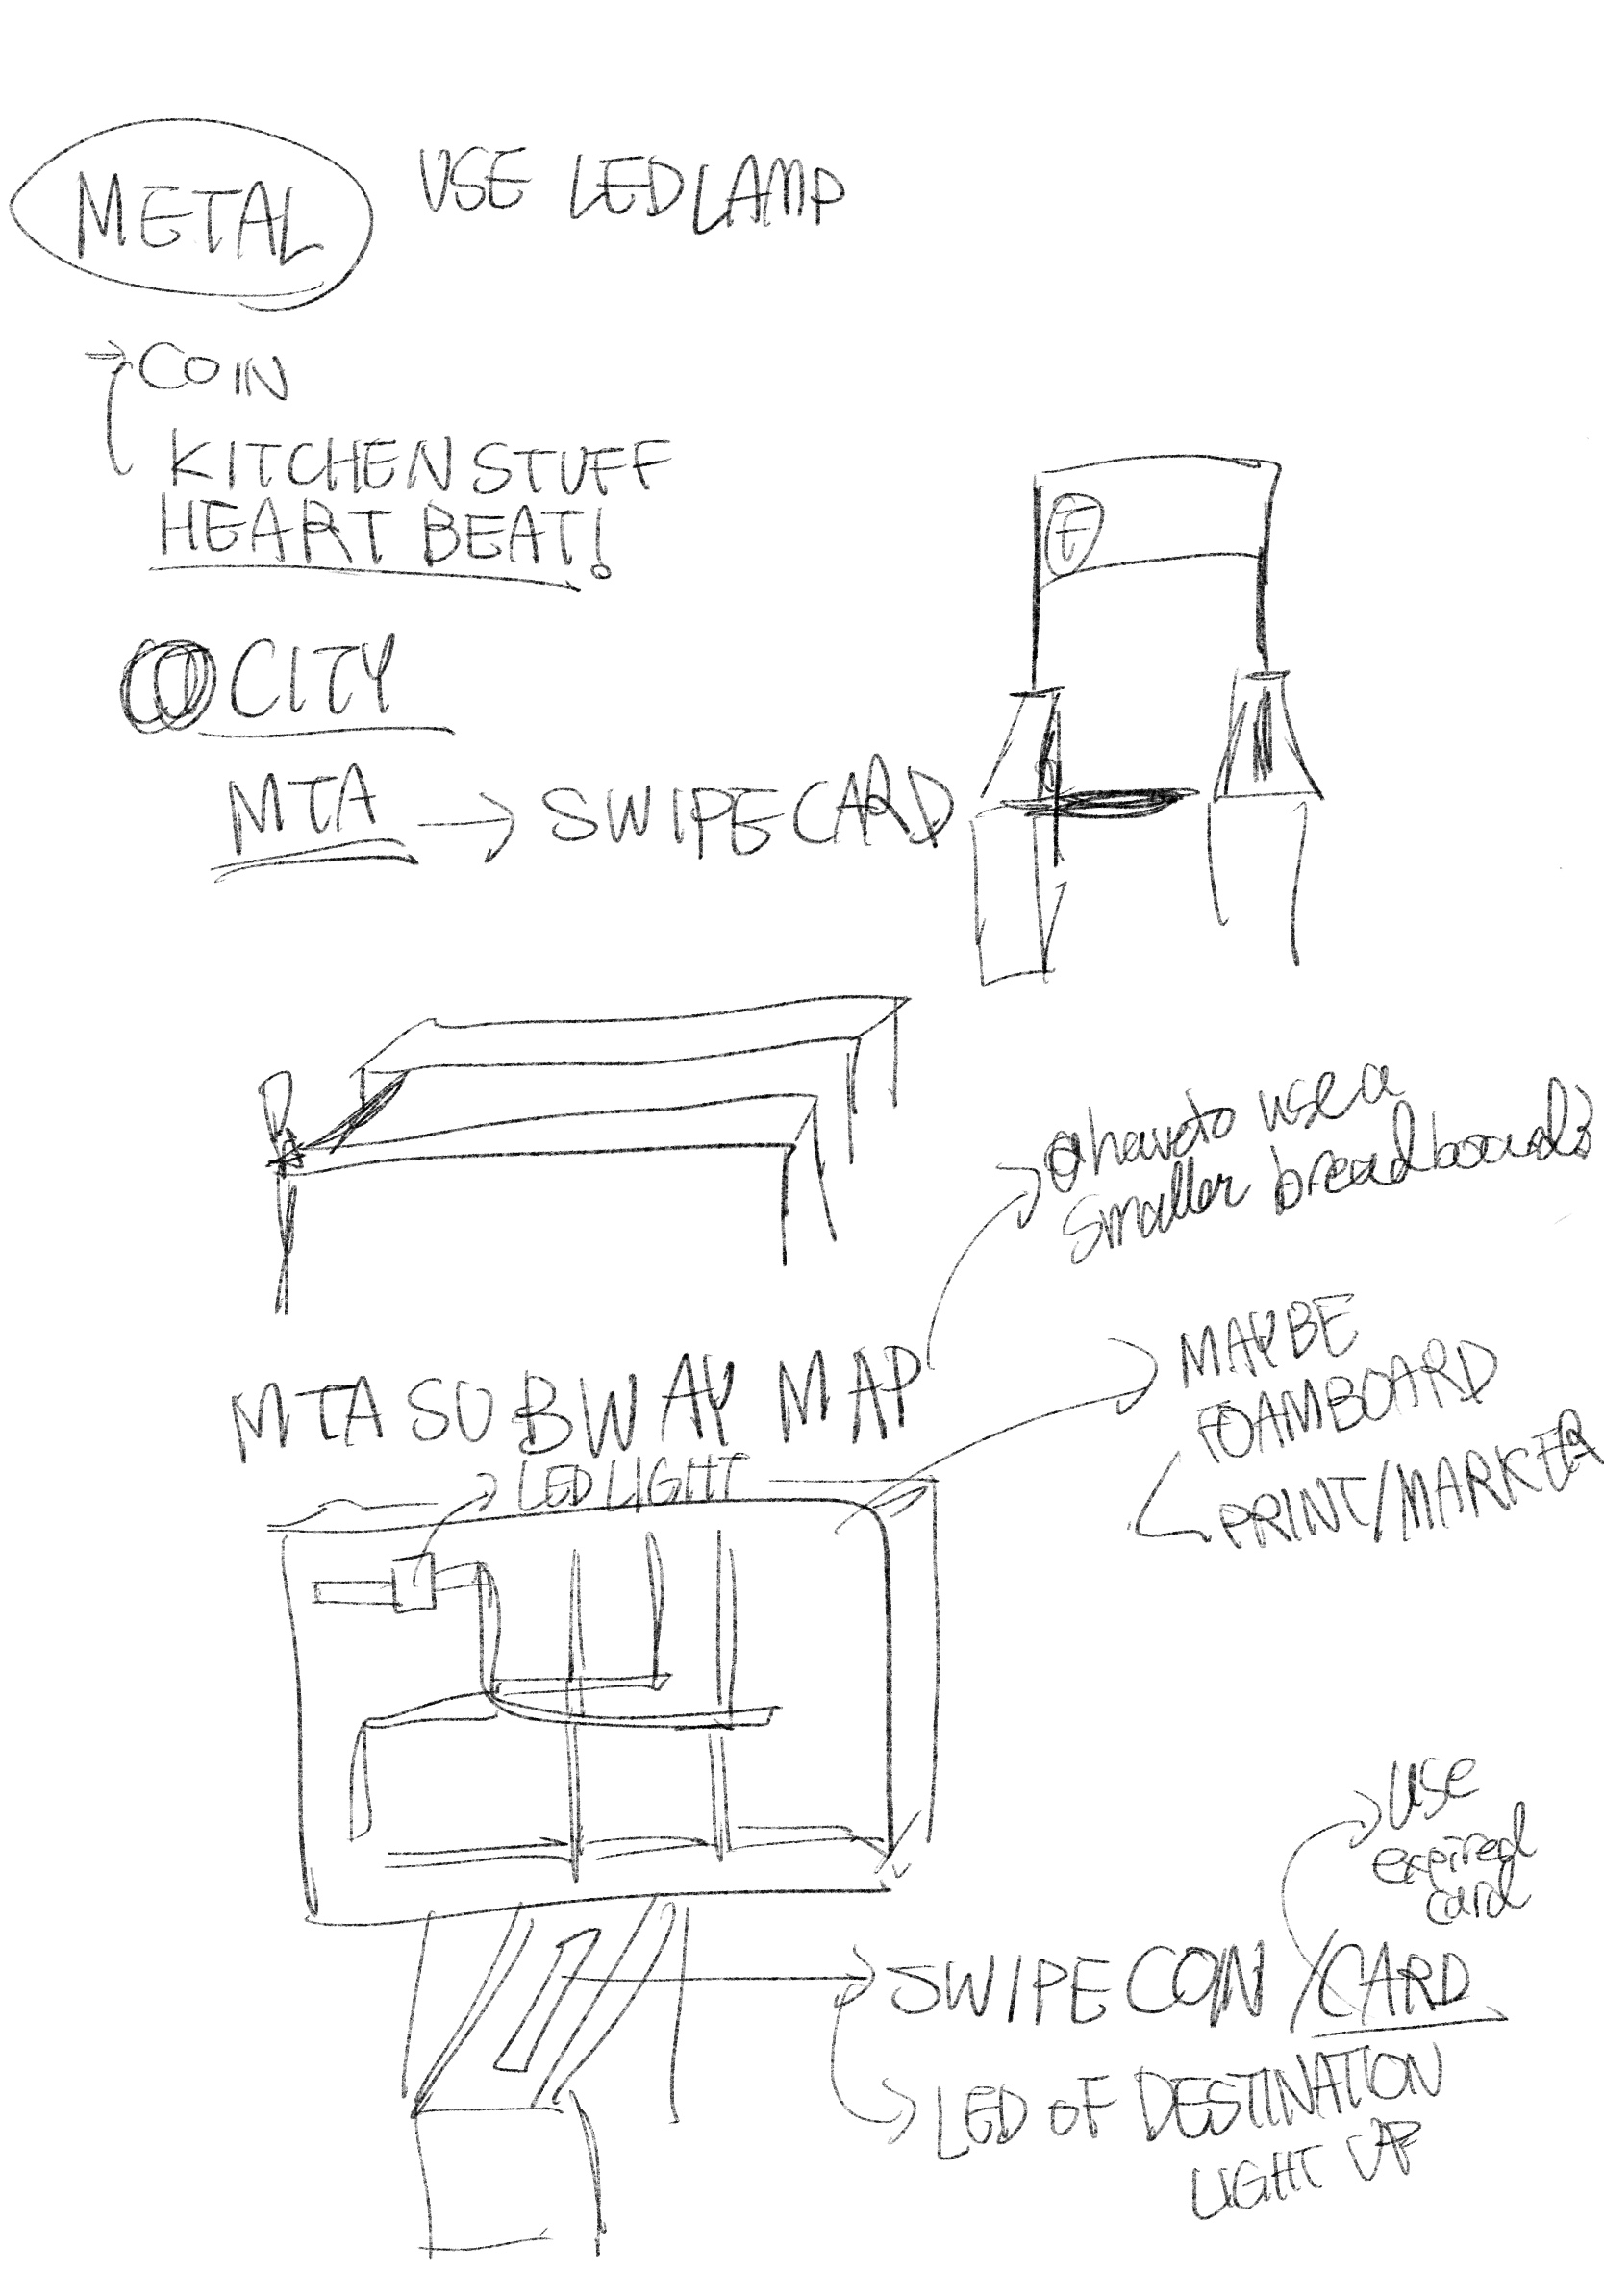 METAL
USE LED LAMP
COIN
KITCHEN STUFF
HEART BEAT!
CITY
MTA → SWIPE CARD
have to use a
smaller breadboard?
MTA SUBWAY MAP
MAYBE
FOAMBOARD
PRINT/MARKER
LED LIGHT
USE
expired
card
SWIPE COIN/CARD
LED OF DESTINATION
LIGHT UP